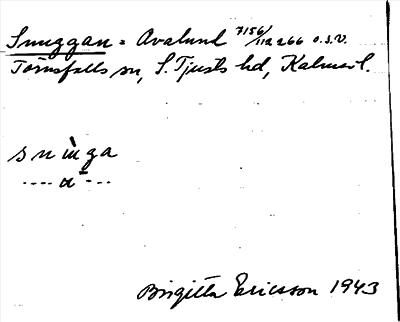 Snuggan = Avalund 7156/112266 o.s.v.
Törnsfalls sn, S. Tjusts hd, Kalmar l.
snùga
---- a ---
Birgitta Ericsson 1943